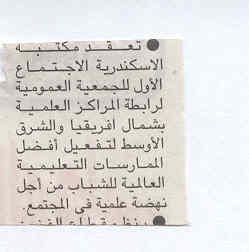 ● تعقد مكتبة
الاسكندرية الاجتماع
الأول للجمعية العمومية
لرابطة المراكز العلمية
بشمال افريقيا والشرق
الأوسط لتفعيل أفضل
الممارسات التعليمية
العالمية للشباب من أجل
نهضة علمية فى المجتمع.